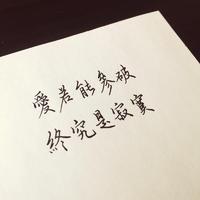 愛若能參破
終究是寂寞